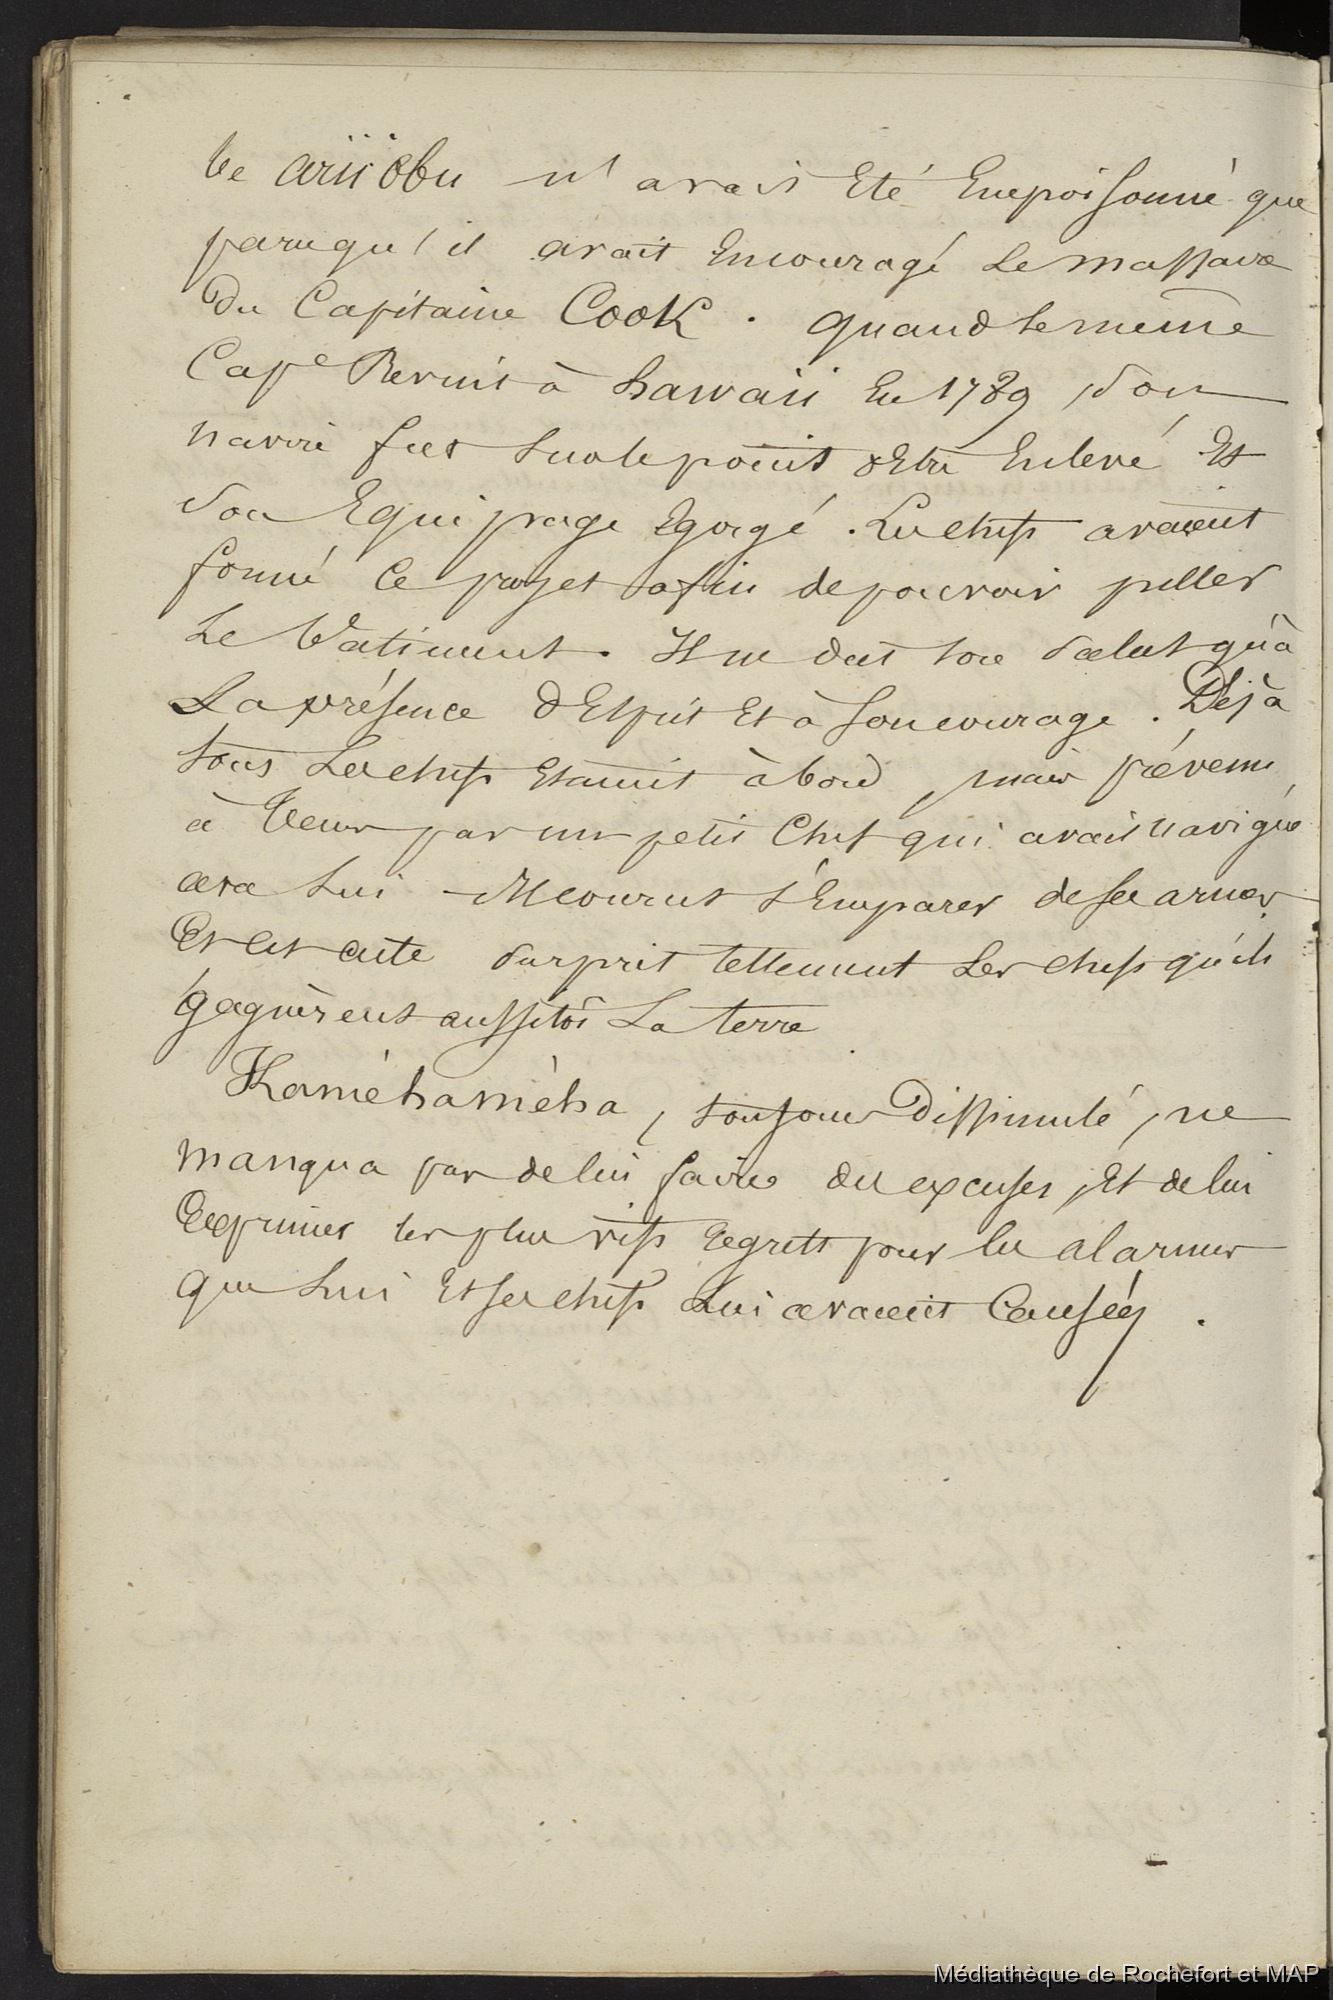 be ariiobu n'avait Eté Empoisonné que
parcequ'il avait Encouragé Le massacre
Du Capitaine Cook. quand le meme
Cape Revint à hawaii En 1789, Son
navire fut Sur le point d'Etre Enlevé Et
Son Equipage Egorgé. Les chefs avaient
formé Ce projet afin de pouvoir piller
Le Batiment. Il ne dut son Salut qu'à
La présence d'Esprit Et à Son courage. Déjà
tous Les chefs Etaient à bord, mais prévenu
à tems par un petit Chef qui avait navigué
avec Lui Il courut s'Emparer de Ses armes
Et cet acte Surprit tellement Les chefs qu'ils
gagnèrent aussitôt La terre
Kaméhaméha, toujours Dissimulé, ne
manqua pas de lui faire des excuses, Et de lui
Exprimer les plus vifs Regrets pour les alarmes
que Lui Et Ses chefs Lui avaient Causées.
Médiathèque de Rochefort et MAP